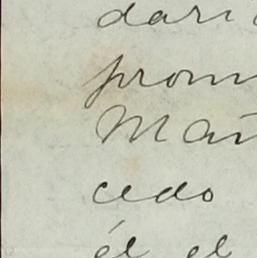 dari
prom
Mañ
cedo
él el